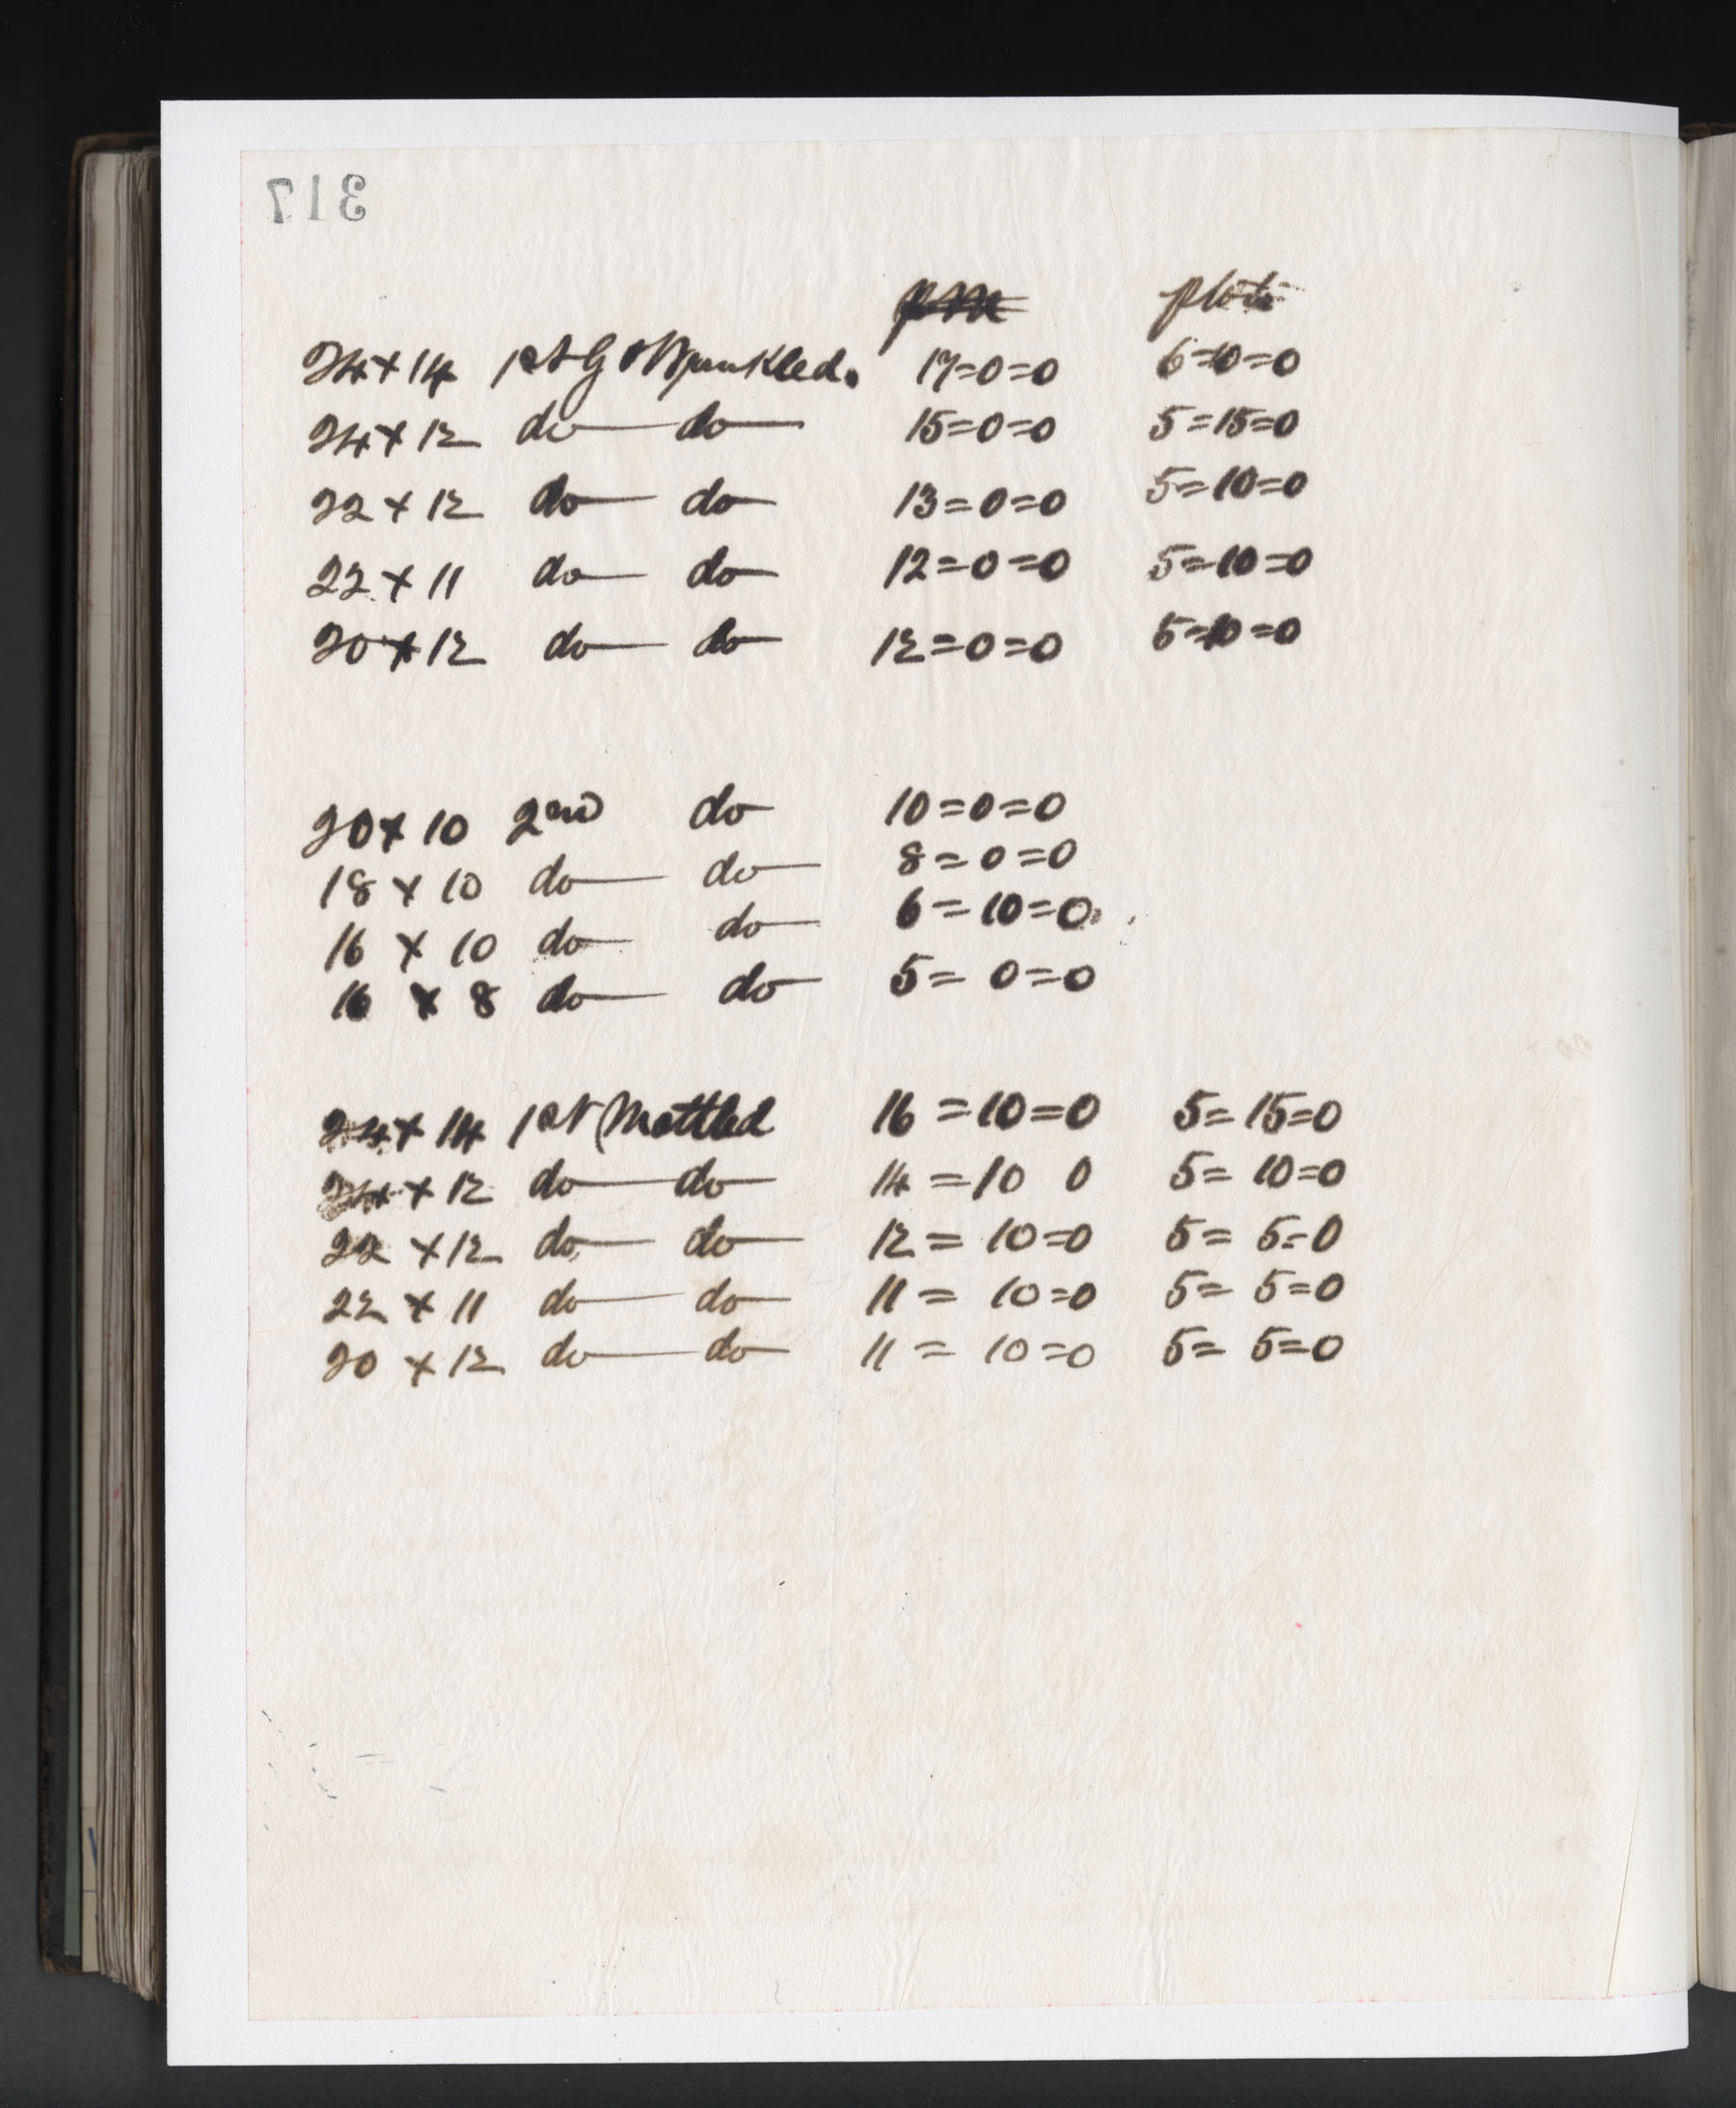 317
p M p lot
24 x 14 1st G & Wrinkled. 17=0=0 6=10=0
24 x 12 do do 15=0=0 5=15=0
22 x 12 do do 13=0=0 5=10=0
22 x 11 do do 12=0=0 5=10=0
20 x 12 do do 12=0=0 5=10=0
20 x 10 2nd do 10=0=0
18 x 10 do do 8=0=0
16 x 10 do do 6=10=0
16 x 8 do do 5=0=0
24 x 14 1st Mottled 16=10=0 5=15=0
24 x 12 do do 14=10 0 5=10=0
22 x 12 do do 12=10=0 5=5=0
22 x 11 do do 11=10=0 5=5=0
20 x 12 do do 11=10=0 5=5=0